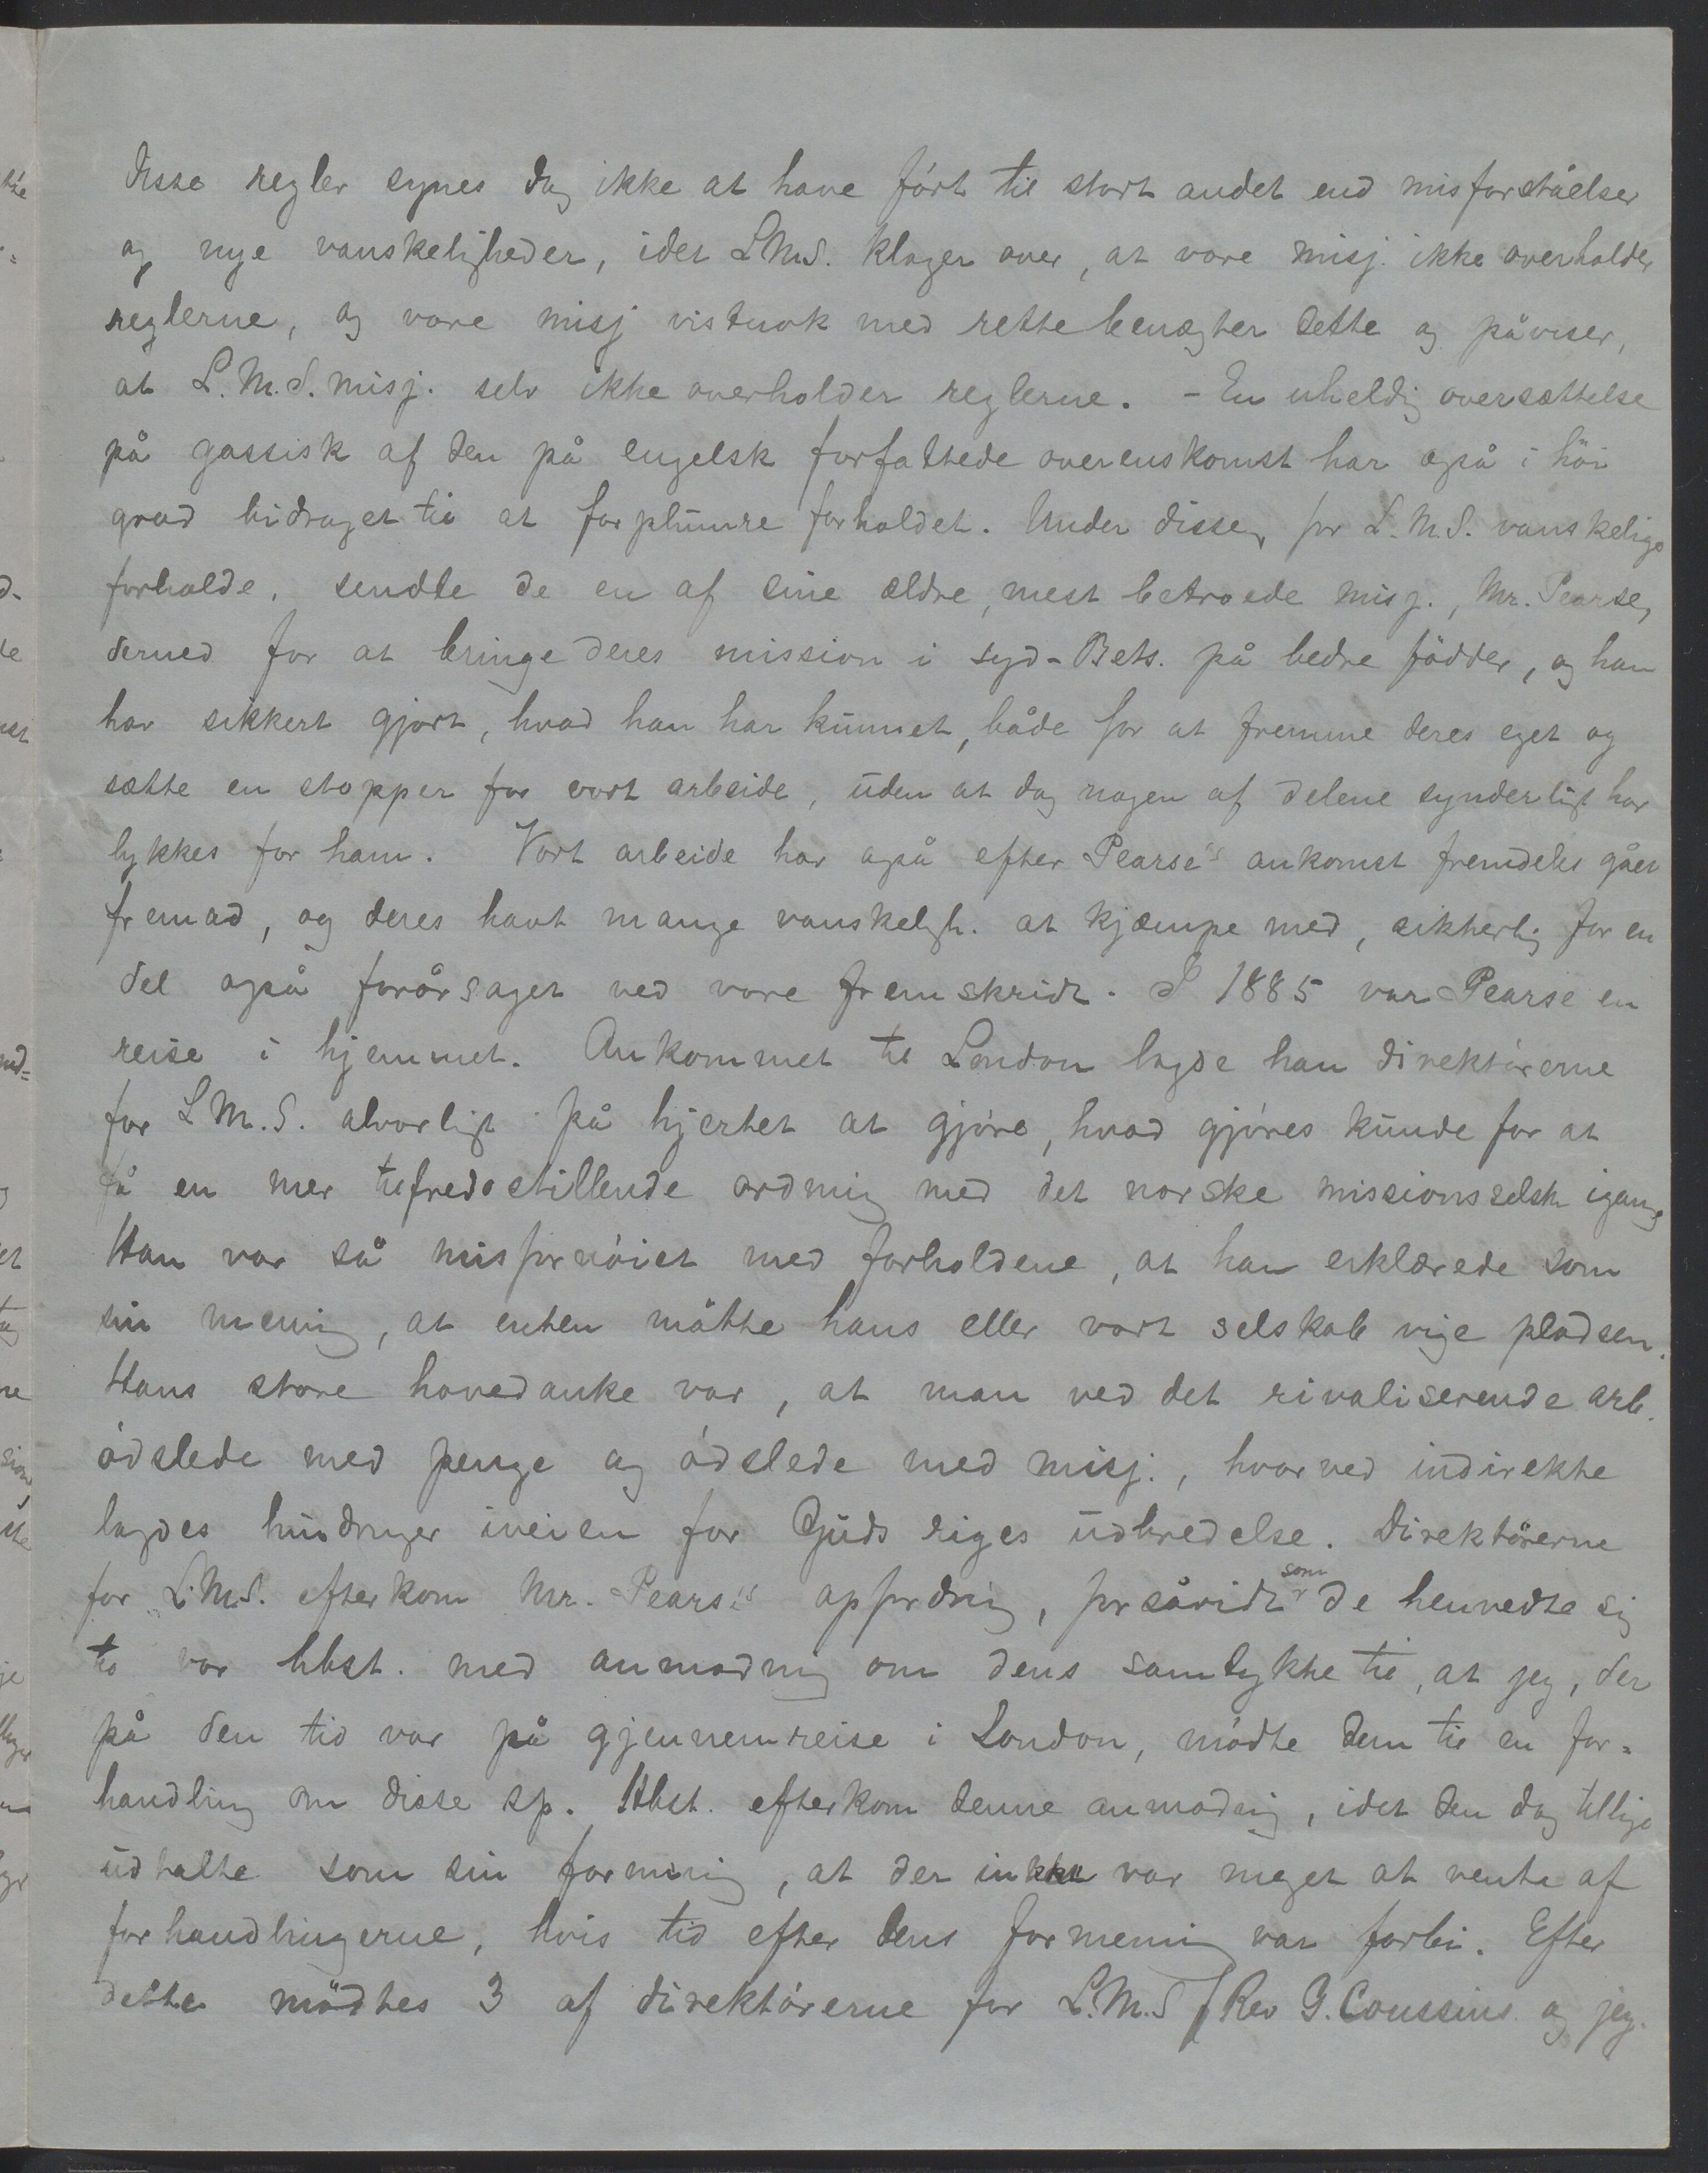 Disse regler synes dog ikke at have ført til stort andet end misforståelser
og nye vanskeligheder, idet L.M.S. klager over, at vore misj. ikke overholder
reglerne, og vore misj vistnok med rette benægter dette og påviser,
at L.M.S. misj. selv ikke overholder reglerne. - En uheldig oversættelse
på gassisk af den på engelsk forfattede overenskomst har også i höi
grad bidraget til at forplumre forholdet. Under disse, for L.M.S. vanskelige
forholde, sendte de en af sine ældre, mest betroede misj., Mr. Pearse,
derned for at bringe deres mission i syd-Bets. på bedre födder, og han
har sikkert gjort, hvad han har kunnet, både for at fremme deres eget og
sætte en stopper for vort arbeide, uden at dog nogen af delene synderligt har
lykkes for ham. Vort arbeide har også efter Pearse's ankomst fremdeles gået
fremad, og deres havt mange vanskeligh. at kjæmpe med, sikkerlig for en
del også forårsaget ved vore fremskridt. I 1885 var Pearse en
reise i hjemmet. Ankommet til London lagde han direktørerne
for L.M.S. alvorligt på hjertet at gjøre, hvad gjøres kunde for at
få en mer tilfredsstillende ordning med det norske missionsselsk igang
Han var så misfornøiet med forholdene, at han erklærede som
sin mening, at enten måtte hans eller vort selskab vige pladsen.
Hans store hovedanke var, at man ved det rivaliserende arb.
ødslede med penge og ødslede med misj., hvorved indirekte
lagdes hindringer iveien for Guds riges udbredelse. Direktörerne
for L.M.S. efterkom Mr. Pearse's opfordring, forsåvidt som de henvendte sig
til vor hbst. med anmodning om dens samtykke til, at jeg, der
på den tid var på gjennemreise i London, mødte dem til en for-
handling om disse sp. Hbst. efterkom denne anmodning, idet den dog tillige
udtalte som sin formening, at der ikke var meget at vente af
forhandlingerne, hvis tid efter dens formening var forbi. Efter
dette mödtes 3 af direktørerne for L.M.S, Rev G. Coussins og jeg.